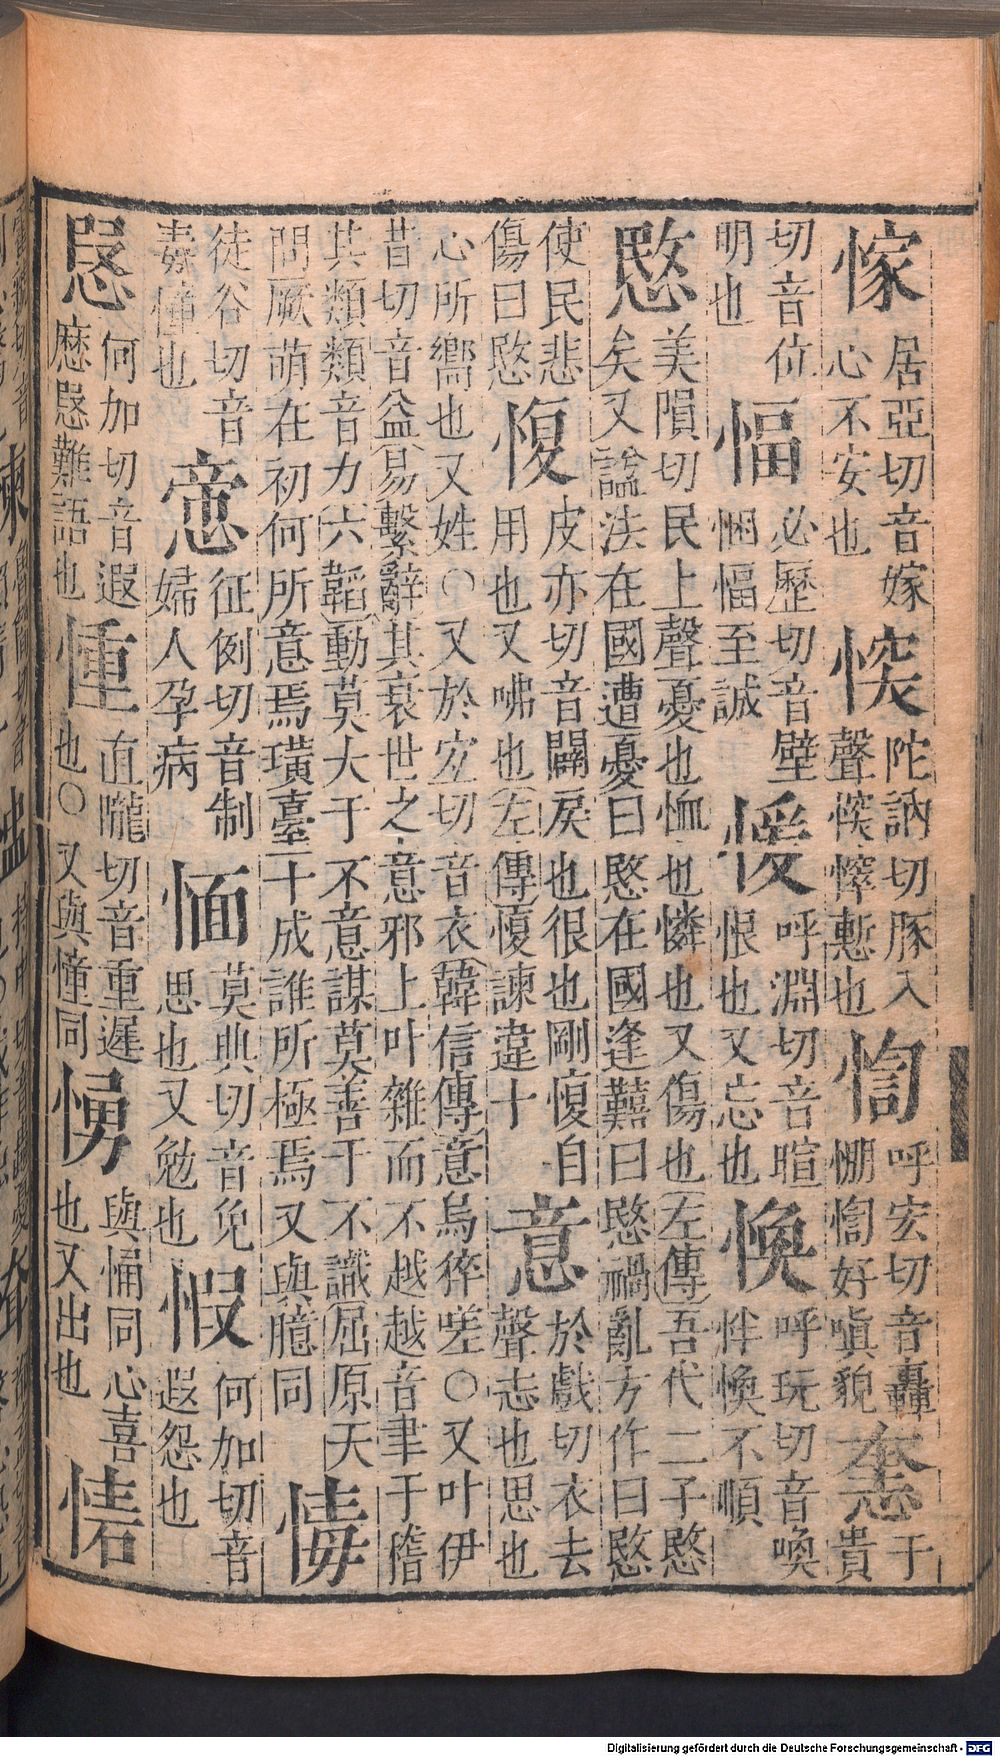 居亞切音嫁
心不安也
陀訥切豚入
聲
慙也
呼宏切音轟
好嗔貌
于
貴
切音位
明也
愊
必歷切音壁
悃愊至誠
愋
呼淵切音暄
恨也又忘也
愌
呼玩切音喚
怑愌不順
愍
美隕切民上聲憂也恤也憐也又傷也左傳吾代二子愍
矣又諡法在國遭憂曰愍在國逢囏曰愍禍亂方作曰愍
使民悲
傷曰愍
愎
皮亦切音闢戾也很也剛愎自
用也又咈也左傳愎諫違十
意
於戲切衣去
聲志也思也
心所嚮也又姓○又於宐切音衣韓信傳意烏猝嗟○又叶伊
昔切音益易繫辭其衰世之意邪上叶雜而不越越音聿于稽
其類類音力六韜動莫大于不意謀莫善于不識屈原天
問厥萌在初何所意焉璜臺十成誰所極焉又與臆同
徒谷切音
毒憧也
征例切音制
婦人孕病
愐
莫典切音免
思也又勉也
何加切音
遐怨也
何加切音遐
難語也
直隴切音重遲
也○又與憧同
愑
與悀同心喜
也又出也
Digitalisierung gefördert durch die Deutsche Forschungsgemeinschaft - DFG